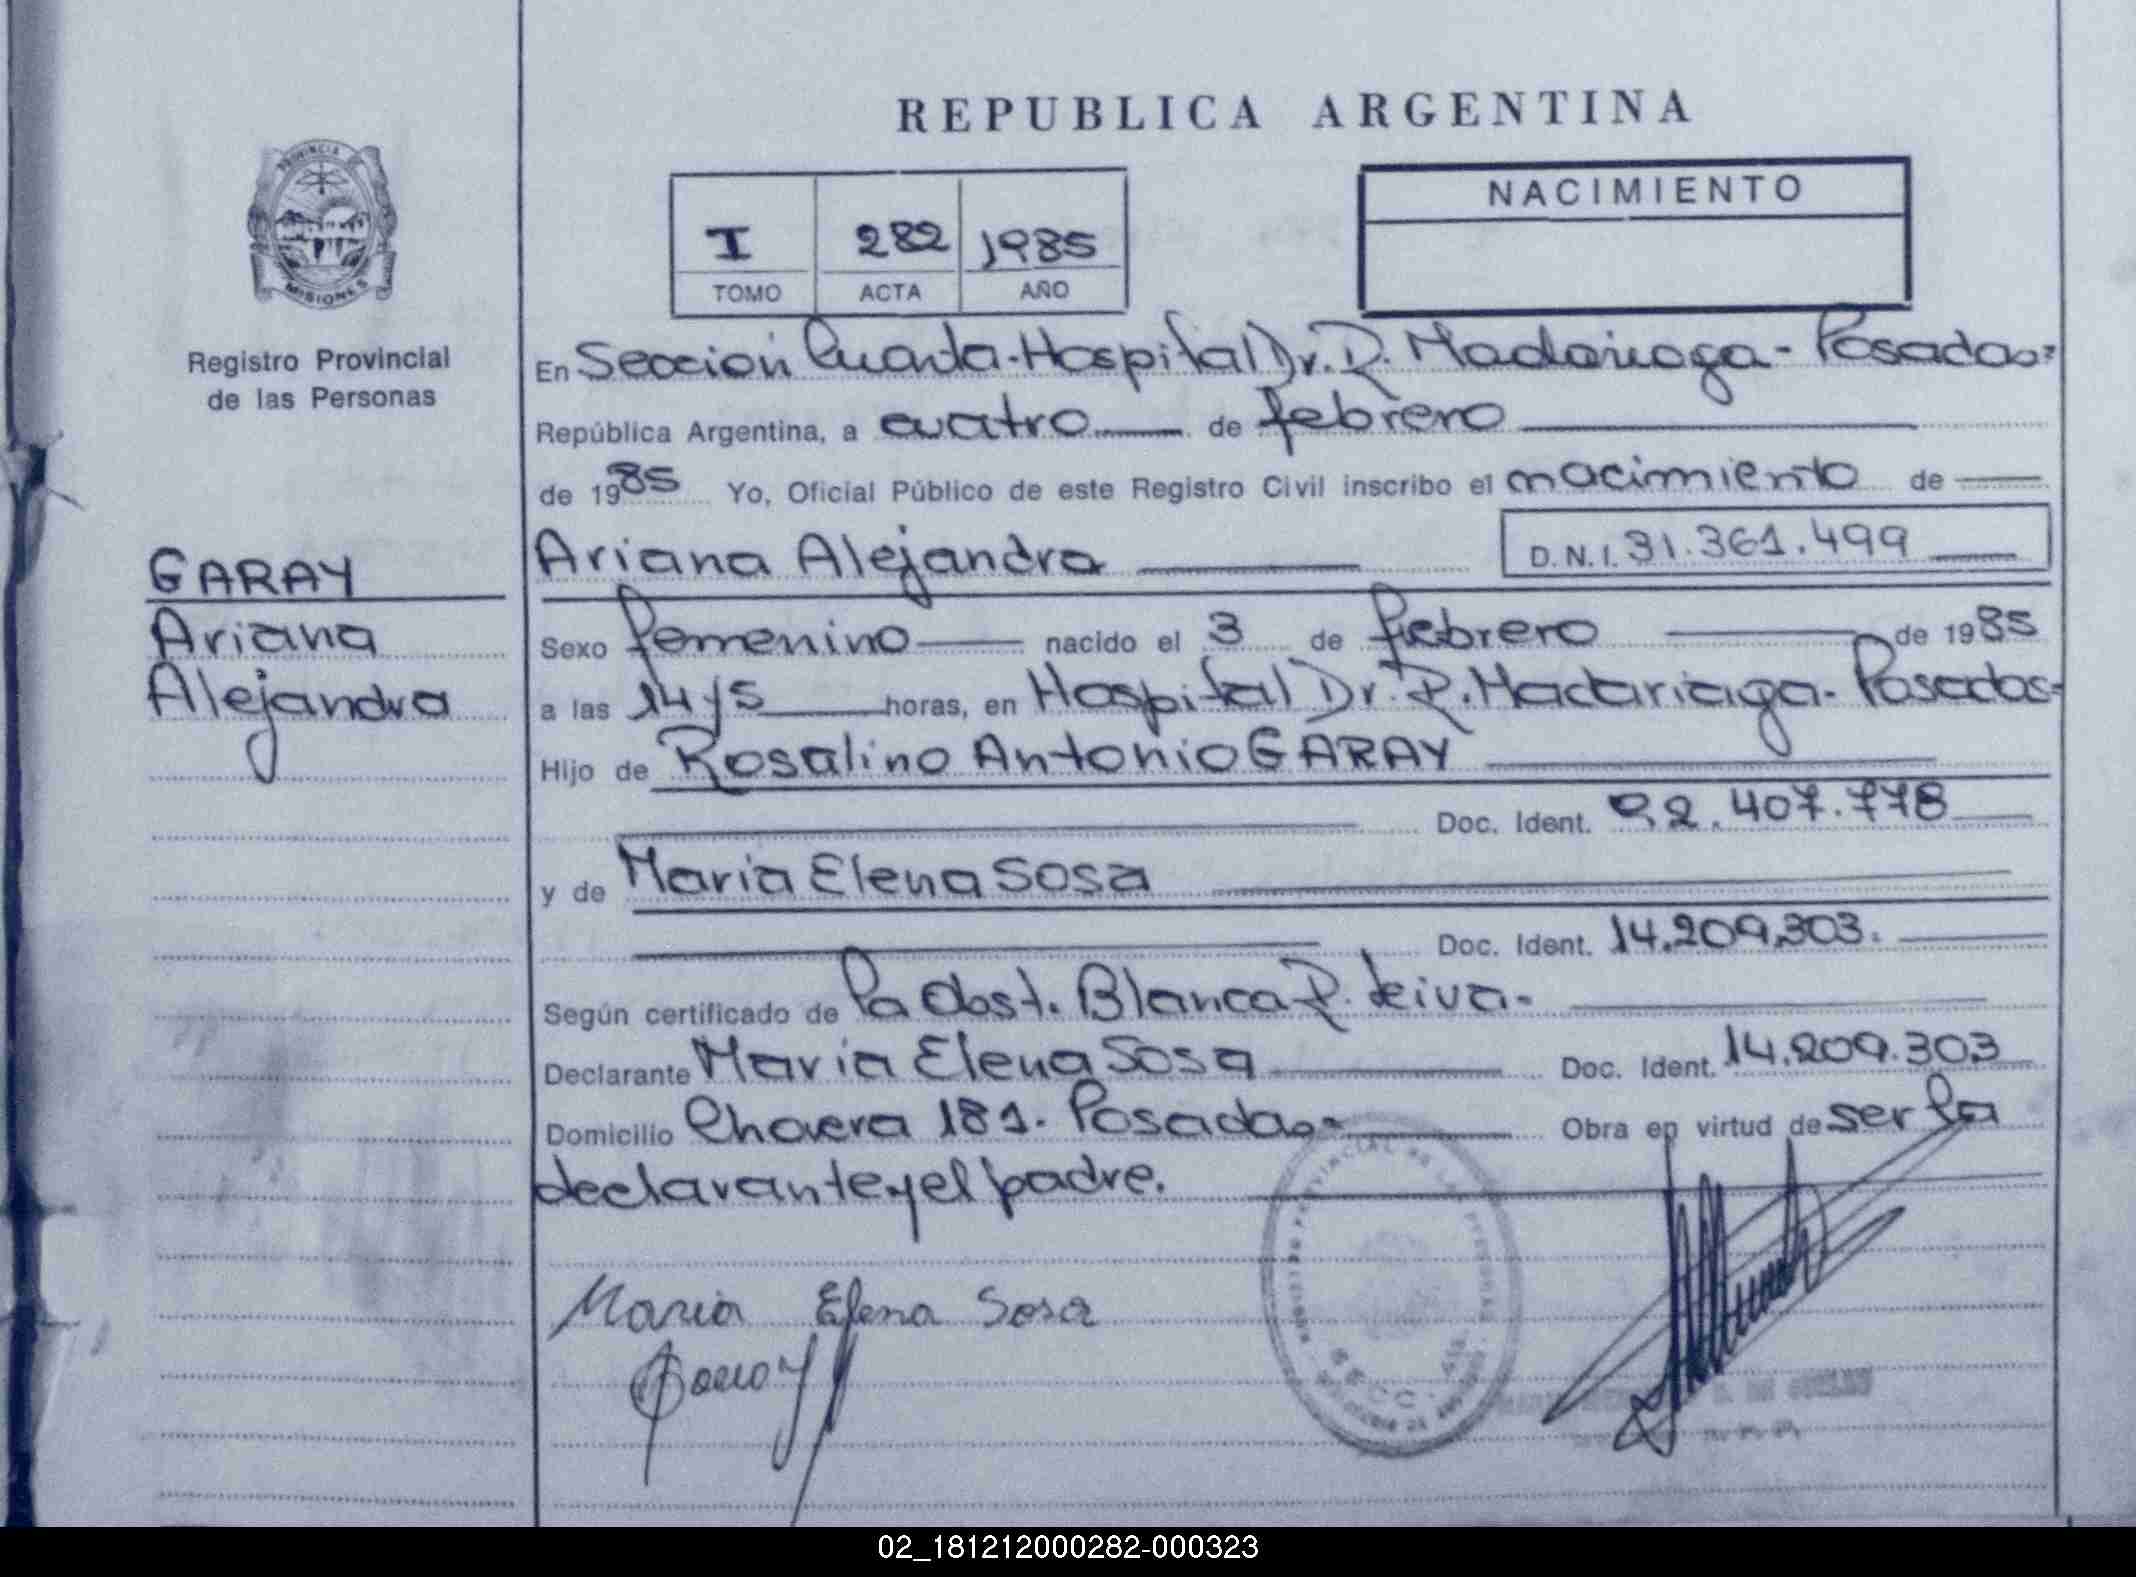 REPUBLICA ARGENTINA
PROVINCIA
MISIONES
Registro Provincial
de las Personas
I 282 1985
TOMO ACTA AÑO
NACIMIENTO
En Sección Cuarta-Hospital Dr. R. Madariaga- Posadas-
República Argentina, a cuatro de febrero
de 1985 Yo, Oficial Público de este Registro Civil inscribo el nacimiento de
GARAY
Ariana
Alejandra
Ariana Alejandra D.N.I. 31.361.499
Sexo femenino nacido el 3 de febrero de 1985
a las 14 y 5 horas, en Hospital Dr. R. Madariaga- Posadas-
Hijo de Rosalino Antonio GARAY
Doc. Ident. 92.407.778
y de Maria Elena Sosa
Doc. Ident. 14.209.303.
Según certificado de la Obst. Blanca R. Leiva-
Declarante Maria Elena Sosa Doc. Ident. 14.209.303
Domicilio 181. Posadas- Obra en virtud de ser la
declarante y el padre.
Maria Elena Sosa
Garay
02_181212000282-000323